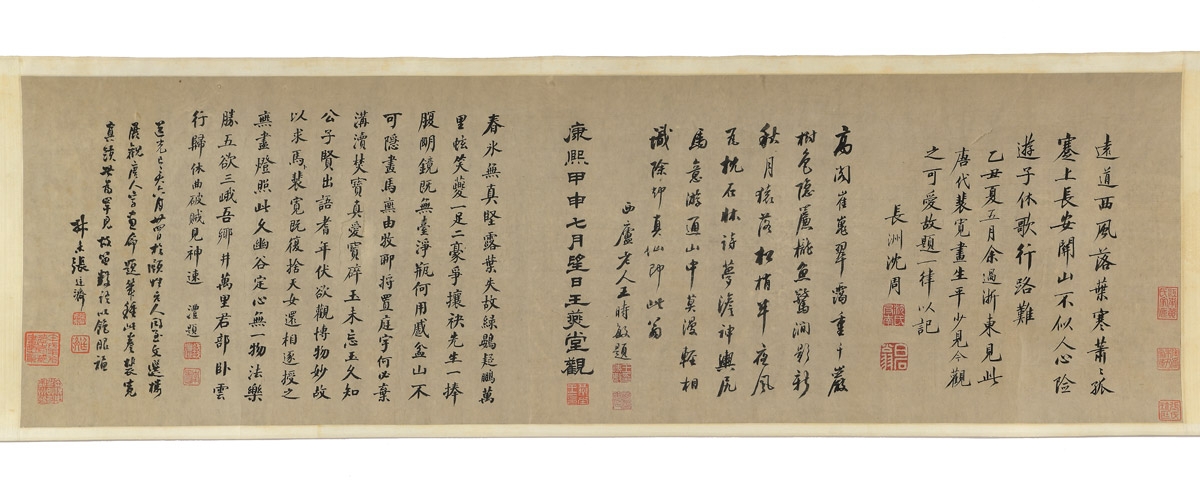 遠道西風落葉寒蕭蕭孤
蹇上長安關山不似人心險
遊子休歌行路難
乙丑夏五月余過浙東見此
唐代裴寬畫生平少見今觀
之可愛故題一律以記
長洲沈周
高閣崔嵬翠靄重千巖
樹色隱簾櫳魚驚澗影新
秋月猿落松梢半夜風
瓦枕石牀詩夢澹神輿尻
馬意游通山中莫漫輕相
識除卻真仙即此翁
西廬老人王時敏題
康熙甲申七月望日王奕堂觀
春氷無真堅露葉失故綠鷃超鵬萬
里蚿笑夔一足二豪爭攘袂先生一捧
腹朙鏡既無臺淨瓶何用蹙盆山不
可隱畫馬無由牧聊將置庭宇何必棄
溝瀆焚寶真愛寶碎玉未忘玉久知
公子賢出語耆年伏欲觀博物妙故
以求馬裴寬既復捨天女還相逐授之
無盡燈照此久幽谷定心無一物法樂
勝五欲三峨吾鄉井萬里君部卧雲
行歸休曲破賊見神速 澧題
道光 月 於
展觀 人 命題 此卷裴寬
真蹟 罕見故 以 眼福
張廷濟